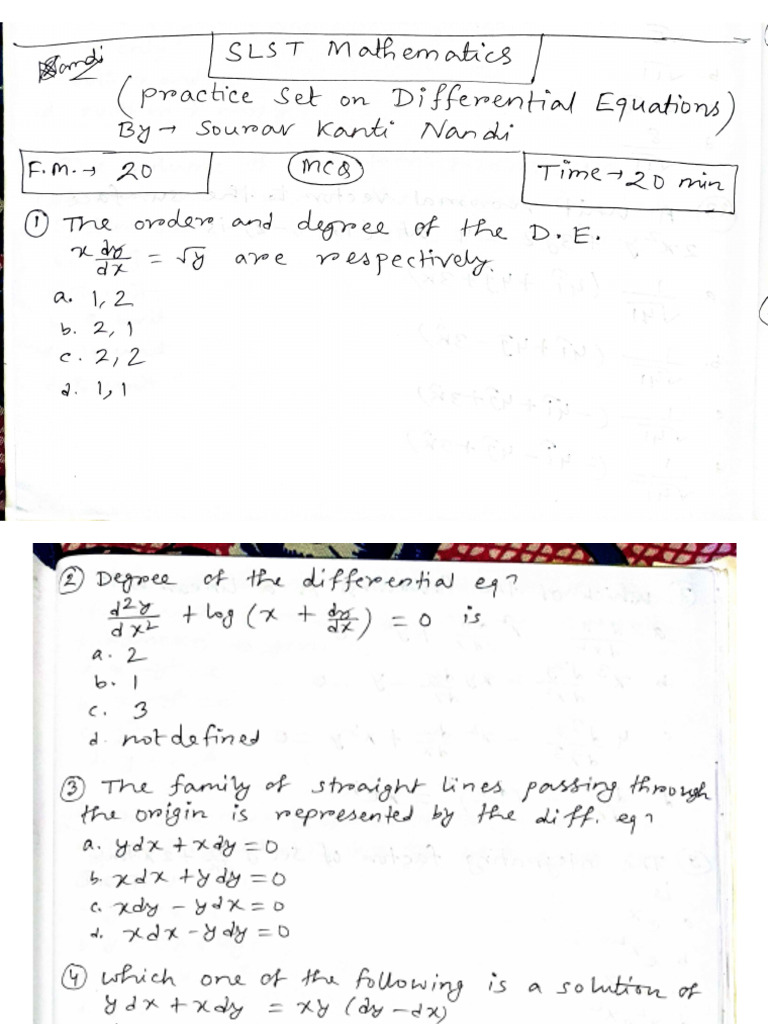 Nandi
SLST Mathematics
(Practice Set on Differential Equations)
By → Sourav Kanti Nandi
F.M. → 20
MCQ
Time → 20 min
① The order and degree of the D.E.
x dy/dx = √y are respectively.
a. 1, 2
b. 2, 1
c. 2, 2
d. 1, 1
② Degree of the differential eqn
d²y/dx² + log (x + dy/dx) = 0 is
a. 2
b. 1
c. 3
d. not defined
③ The family of straight lines passing through
the origin is represented by the diff. eqn
a. ydx + xdy = 0
b. xdx + ydy = 0
c. xdy - ydx = 0
d. xdx - ydy = 0
④ which one of the following is a solution of
ydx + xdy = xy (dy - dx)